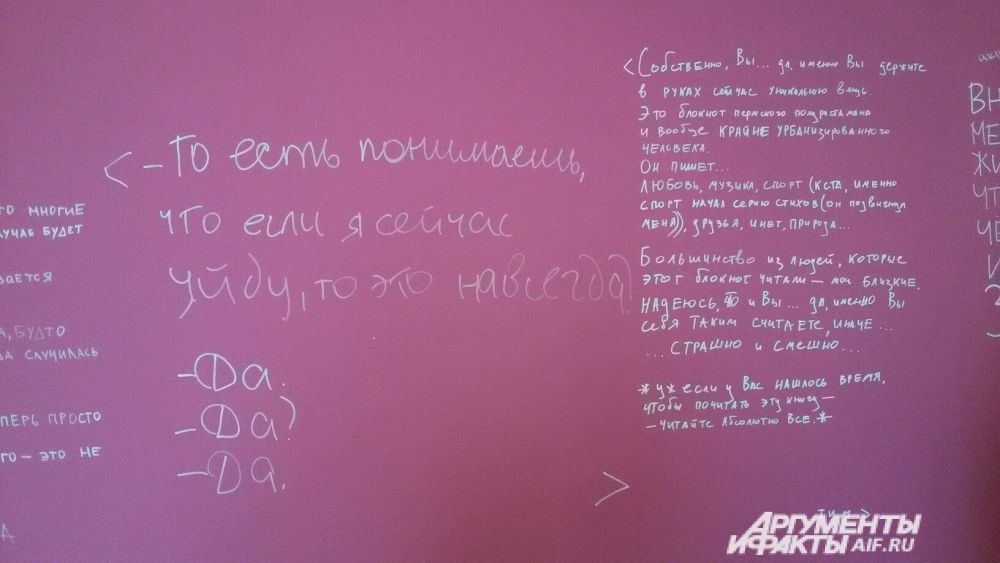 ГО МНОГИЕ
УЧАЕ БУДЕТ
ВАЕТСЯ
А, БУДТО
ДА СЛУЧИЛАСЬ
ПЕРЬ ПРОСТО
ГО — ЭТО НЕ
А
< – То есть понимаешь,
что если я сейчас
уйду, то это навсегда?
– Да.
– Да?
– Да. >
< Собственно, Вы... да, именно Вы держите
в руках сейчас уникальную вещь.
Это блокнот пермского
и вообще КРАЙНЕ УРБАНИЗИРОВАННОГО
человека.
Он пишет...
Любовь, музыка, спорт (кста, именно
спорт начал серию стихов (он подвигнул
меня)), друзья, инет, природа...
Большинство из людей, которые
этот блокнот читали — мои близкие.
Надеюсь, что и Вы... да, именно Вы
себя таким считаете, иначе...
... СТРАШНО и СМЕШНО...
* уж если у Вас нашлось время,
чтобы почитать эту книгу —
— читайте Абсолютно Все. *
тим >
ВН
МЕ
ЖИ
ЧТ
ЧЕ
И
АРГУМЕНТЫ
И ФАКТЫ AIF.RU